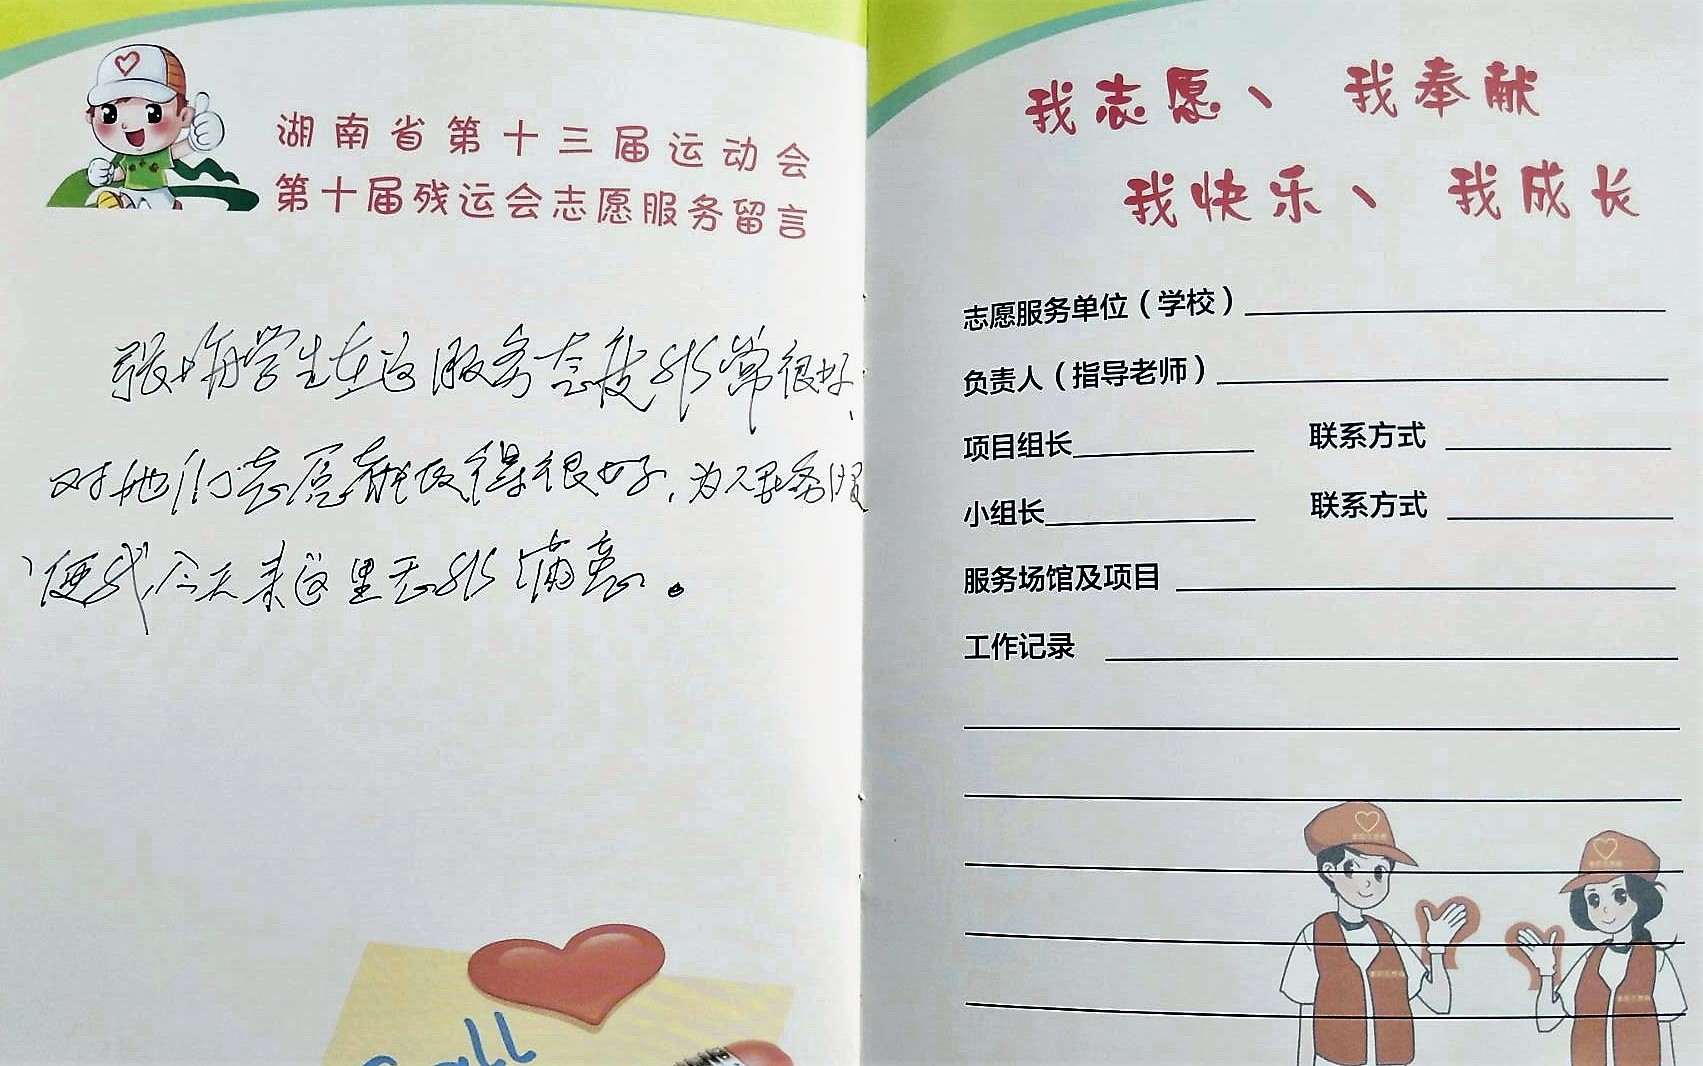 湖南省第十三届运动会
第十届残运会志愿服务留言
学生在这服务态度非常很好、
对他们志愿都做得很好,为人民务服
使我今天来这里无非满意。
Call
我志愿、我奉献
我快乐、我成长
志愿服务单位(学校)
负责人(指导老师)
项目组长 联系方式
小组长 联系方式
服务场馆及项目
工作记录